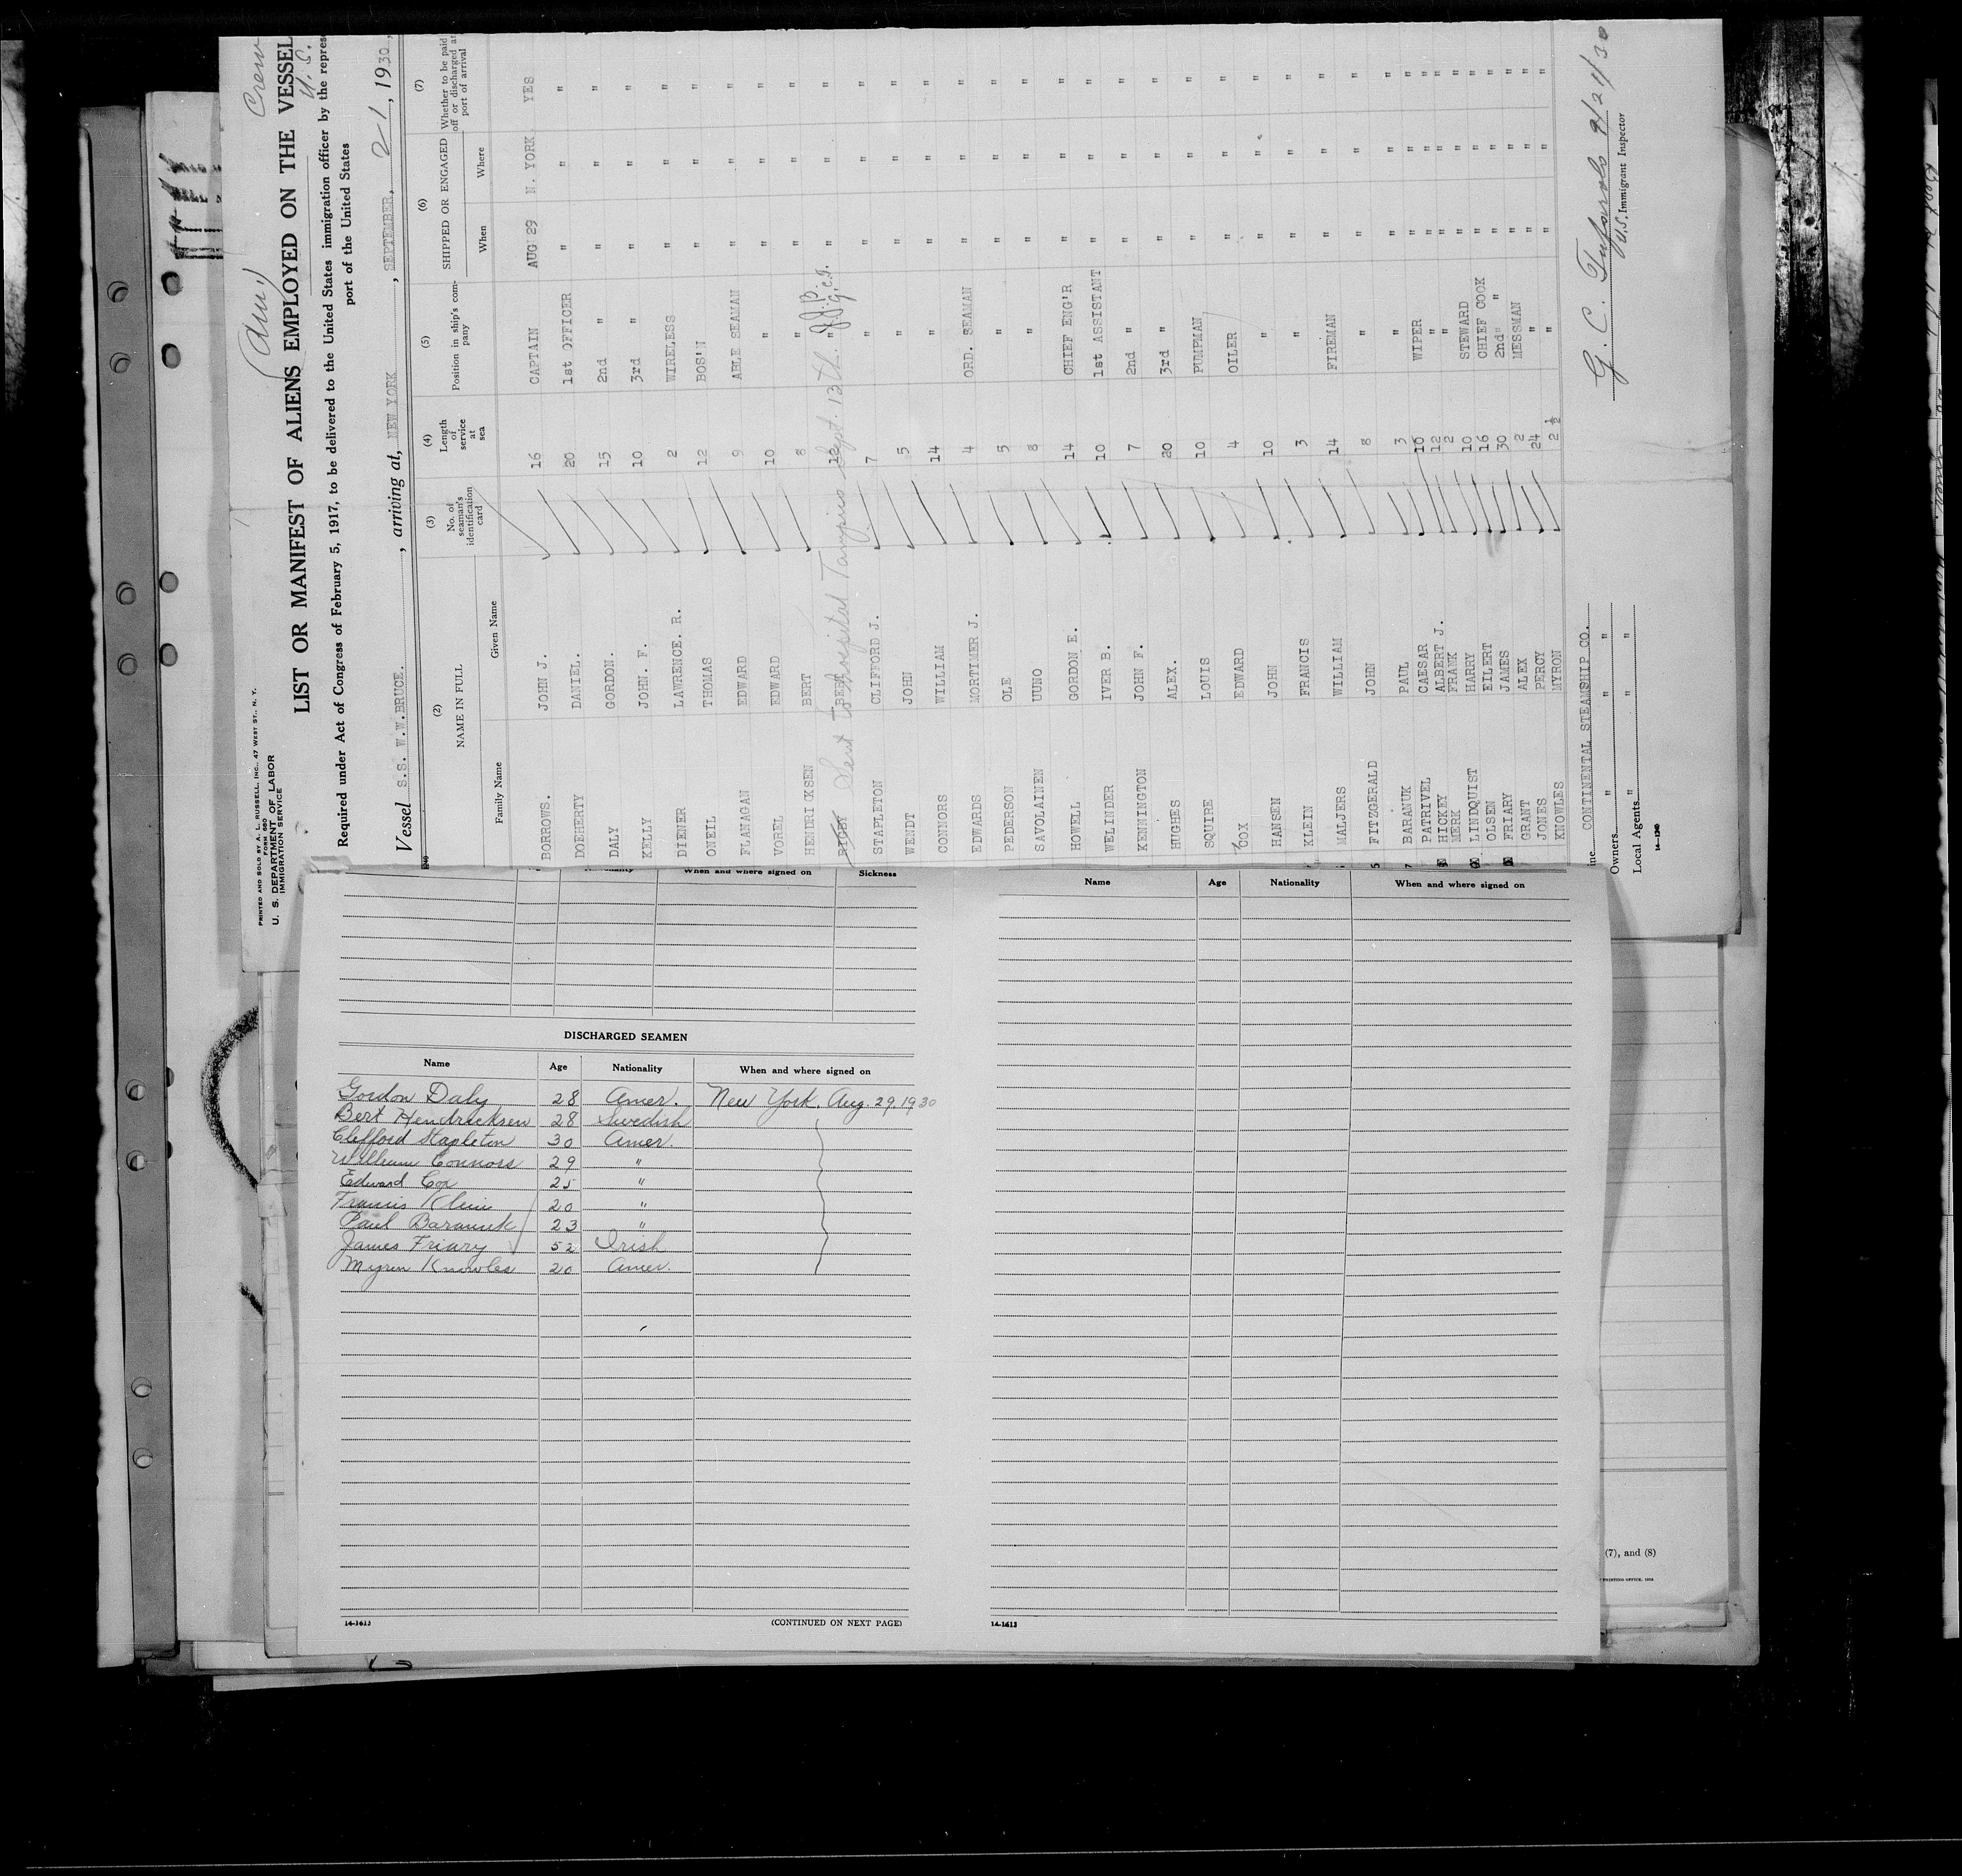 (Am.)
Crew
U.S.
PRINTED AND SOLD BY A. L. RUSSELL, INC., 47 WEST ST., N. Y.
FORM 680
U. S. DEPARTMENT OF LABOR
IMMIGRATION SERVICE
LIST OR MANIFEST OF ALIENS EMPLOYED ON THE VESSEL
Required under Act of Congress of February 5, 1917, to be delivered to the United States immigration officer by the repres
port of the United States
Vessel S.S. W.W.BRUCE. , arriving at, NEW YORK , SEPTEMBER, 21, 1930,
(2) (3) (4) (5) (6) (7)
NAME IN FULL No. of seaman's identification card Length of service at sea Position in ship's company SHIPPED OR ENGAGED Whether to be paid off or discharged at port of arrival
Family Name Given Name When Where
BORROWS. JOHN J. 16 CAPTAIN AUG 29 N. YORK YES
DOEHERTY DANIEL. 20 1st OFFICER " " "
DALY GORDON. 15 2nd " " " "
KELLY JOHN. F. 10 3rd " " " "
DIENER LAWRENCE. R. 2 WIRELESS " " "
ONEIL THOMAS 12 BOS'N " " "
FLANAGAN EDWARD 9 ABLE SEAMAN " " "
VOREL EDWARD 10 " " " "
HENDRICKSEN BERT 8 " " " "
BENT 12 " " " "
Sent to hospital Tampico Sept. 13th. J.J.B. G.C.T.
STAPLETON CLIFFORD J. 7 " " " "
WENDT JOHN 5 " " " "
CONNORS WILLIAM 14 " " " "
EDWARDS MORTIMER J. 4 ORD. SEAMAN " " "
PEDERSON OLE 5 " " " "
SAVOLAINEN UUNO 8 " " " "
HOWELL GORDON E. 14 CHIEF ENG'R " " "
WELINDER IVER B. 10 1st ASSISTANT " " "
KENNINGTON JOHN F. 7 2nd " " " "
HUGHES ALEX. 20 3rd " " " "
SQUIRE LOUIS 10 PUMPMAN " " "
COX EDWARD 4 OILER " " "
HANSEN JOHN 10 " " " "
KLEIN FRANCIS 3 " " " "
MALJERS WILLIAM 14 FIREMAN " " "
FITZGERALD JOHN 8 " " " "
BARANUK PAUL 3 " " " "
PATRIVEL CAESAR 10 WIPER " " "
HICKEY ALBERT J. 12 " " " "
MERK FRANK 2 " " " "
LINDQUIST HARRY 10 STEWARD " " "
OLSEN EILERT 16 CHIEF COOK " " "
FRIARY JAMES 30 2nd " " " "
GRANT ALEX 2 MESSMAN " " "
JONES PERCY 24 " " " "
KNOWLES MYRON 2 ½ " " " "
ine CONTINENTAL STEAMSHIP CO.
Owners " " "
Local Agents " " "
14-1240
G. C. 9/21/30
U.S. Immigrant Inspector
When and where signed on Sickness
DISCHARGED SEAMEN
Name Age Nationality When and where signed on
Gordon Daly 28 Amer. New York. Aug. 29. 1930
Bert Hendricksen 28 Swedish
Clifford Stapleton 30 Amer.
William Connors 29 "
Edward Cox 25 "
Francis Klein 20 "
Paul Baranuk 23 "
James Friary 52 Irish
Myron Knowles 20 Amer.
14-1613 (CONTINUED ON NEXT PAGE)
Name Age Nationality When and where signed on
14-1613
(7), and (8)